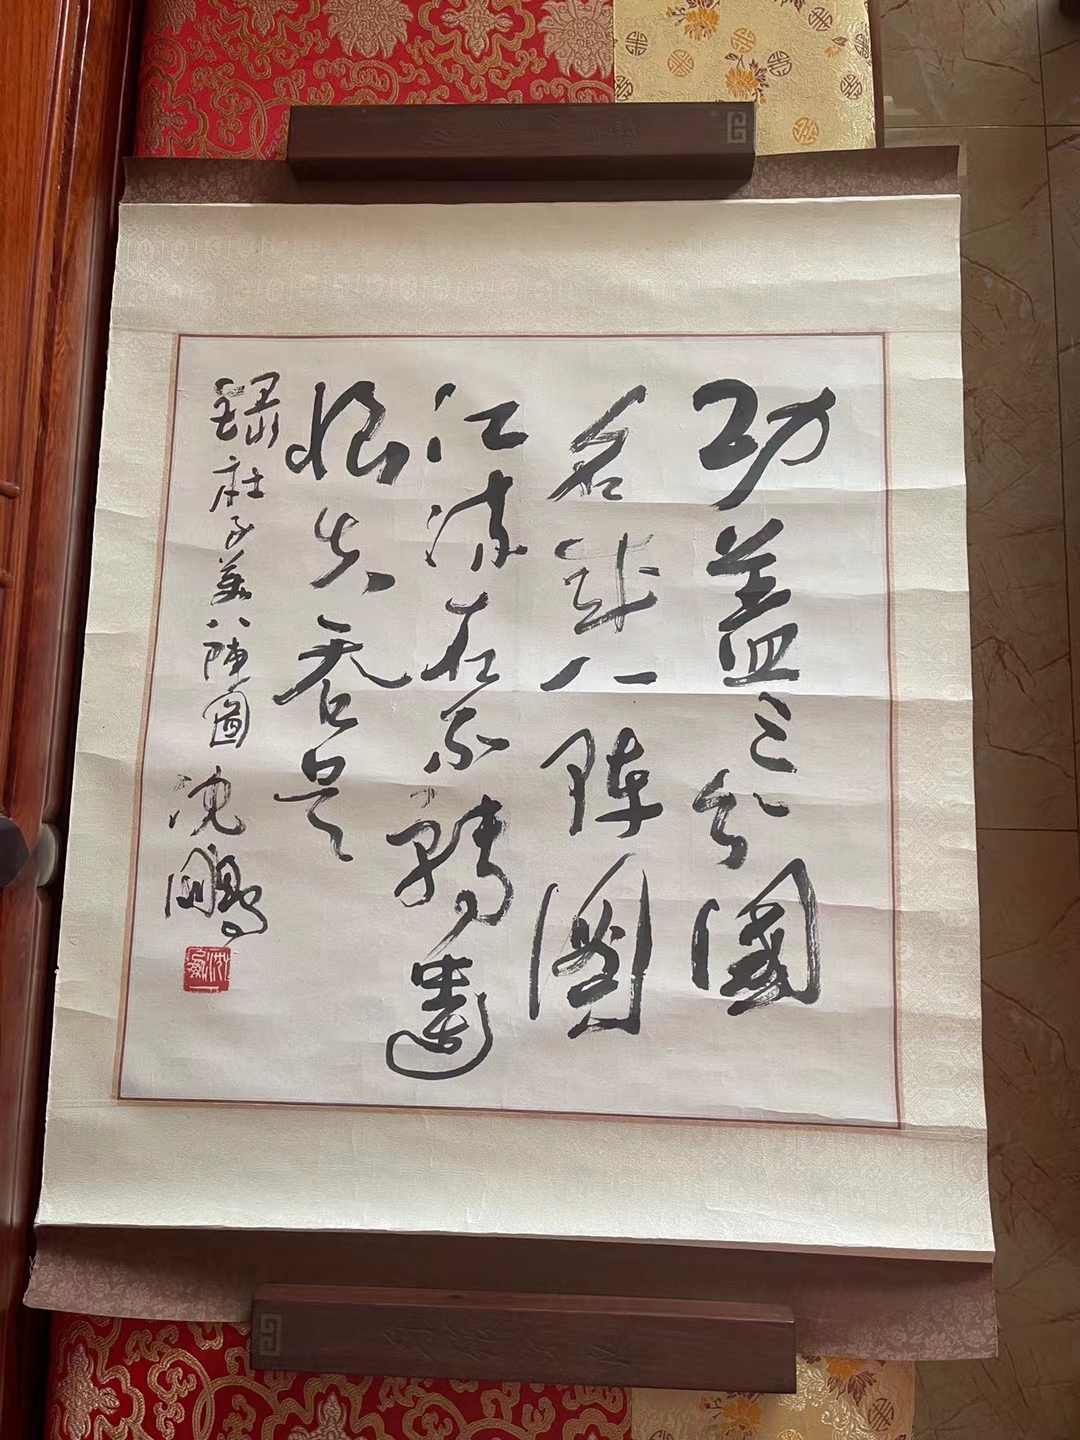 功盖三分國
名成八陣圖
江流石不轉遺
恨失吞吴
録杜子美八陣圖 沈鵬
沈鵬